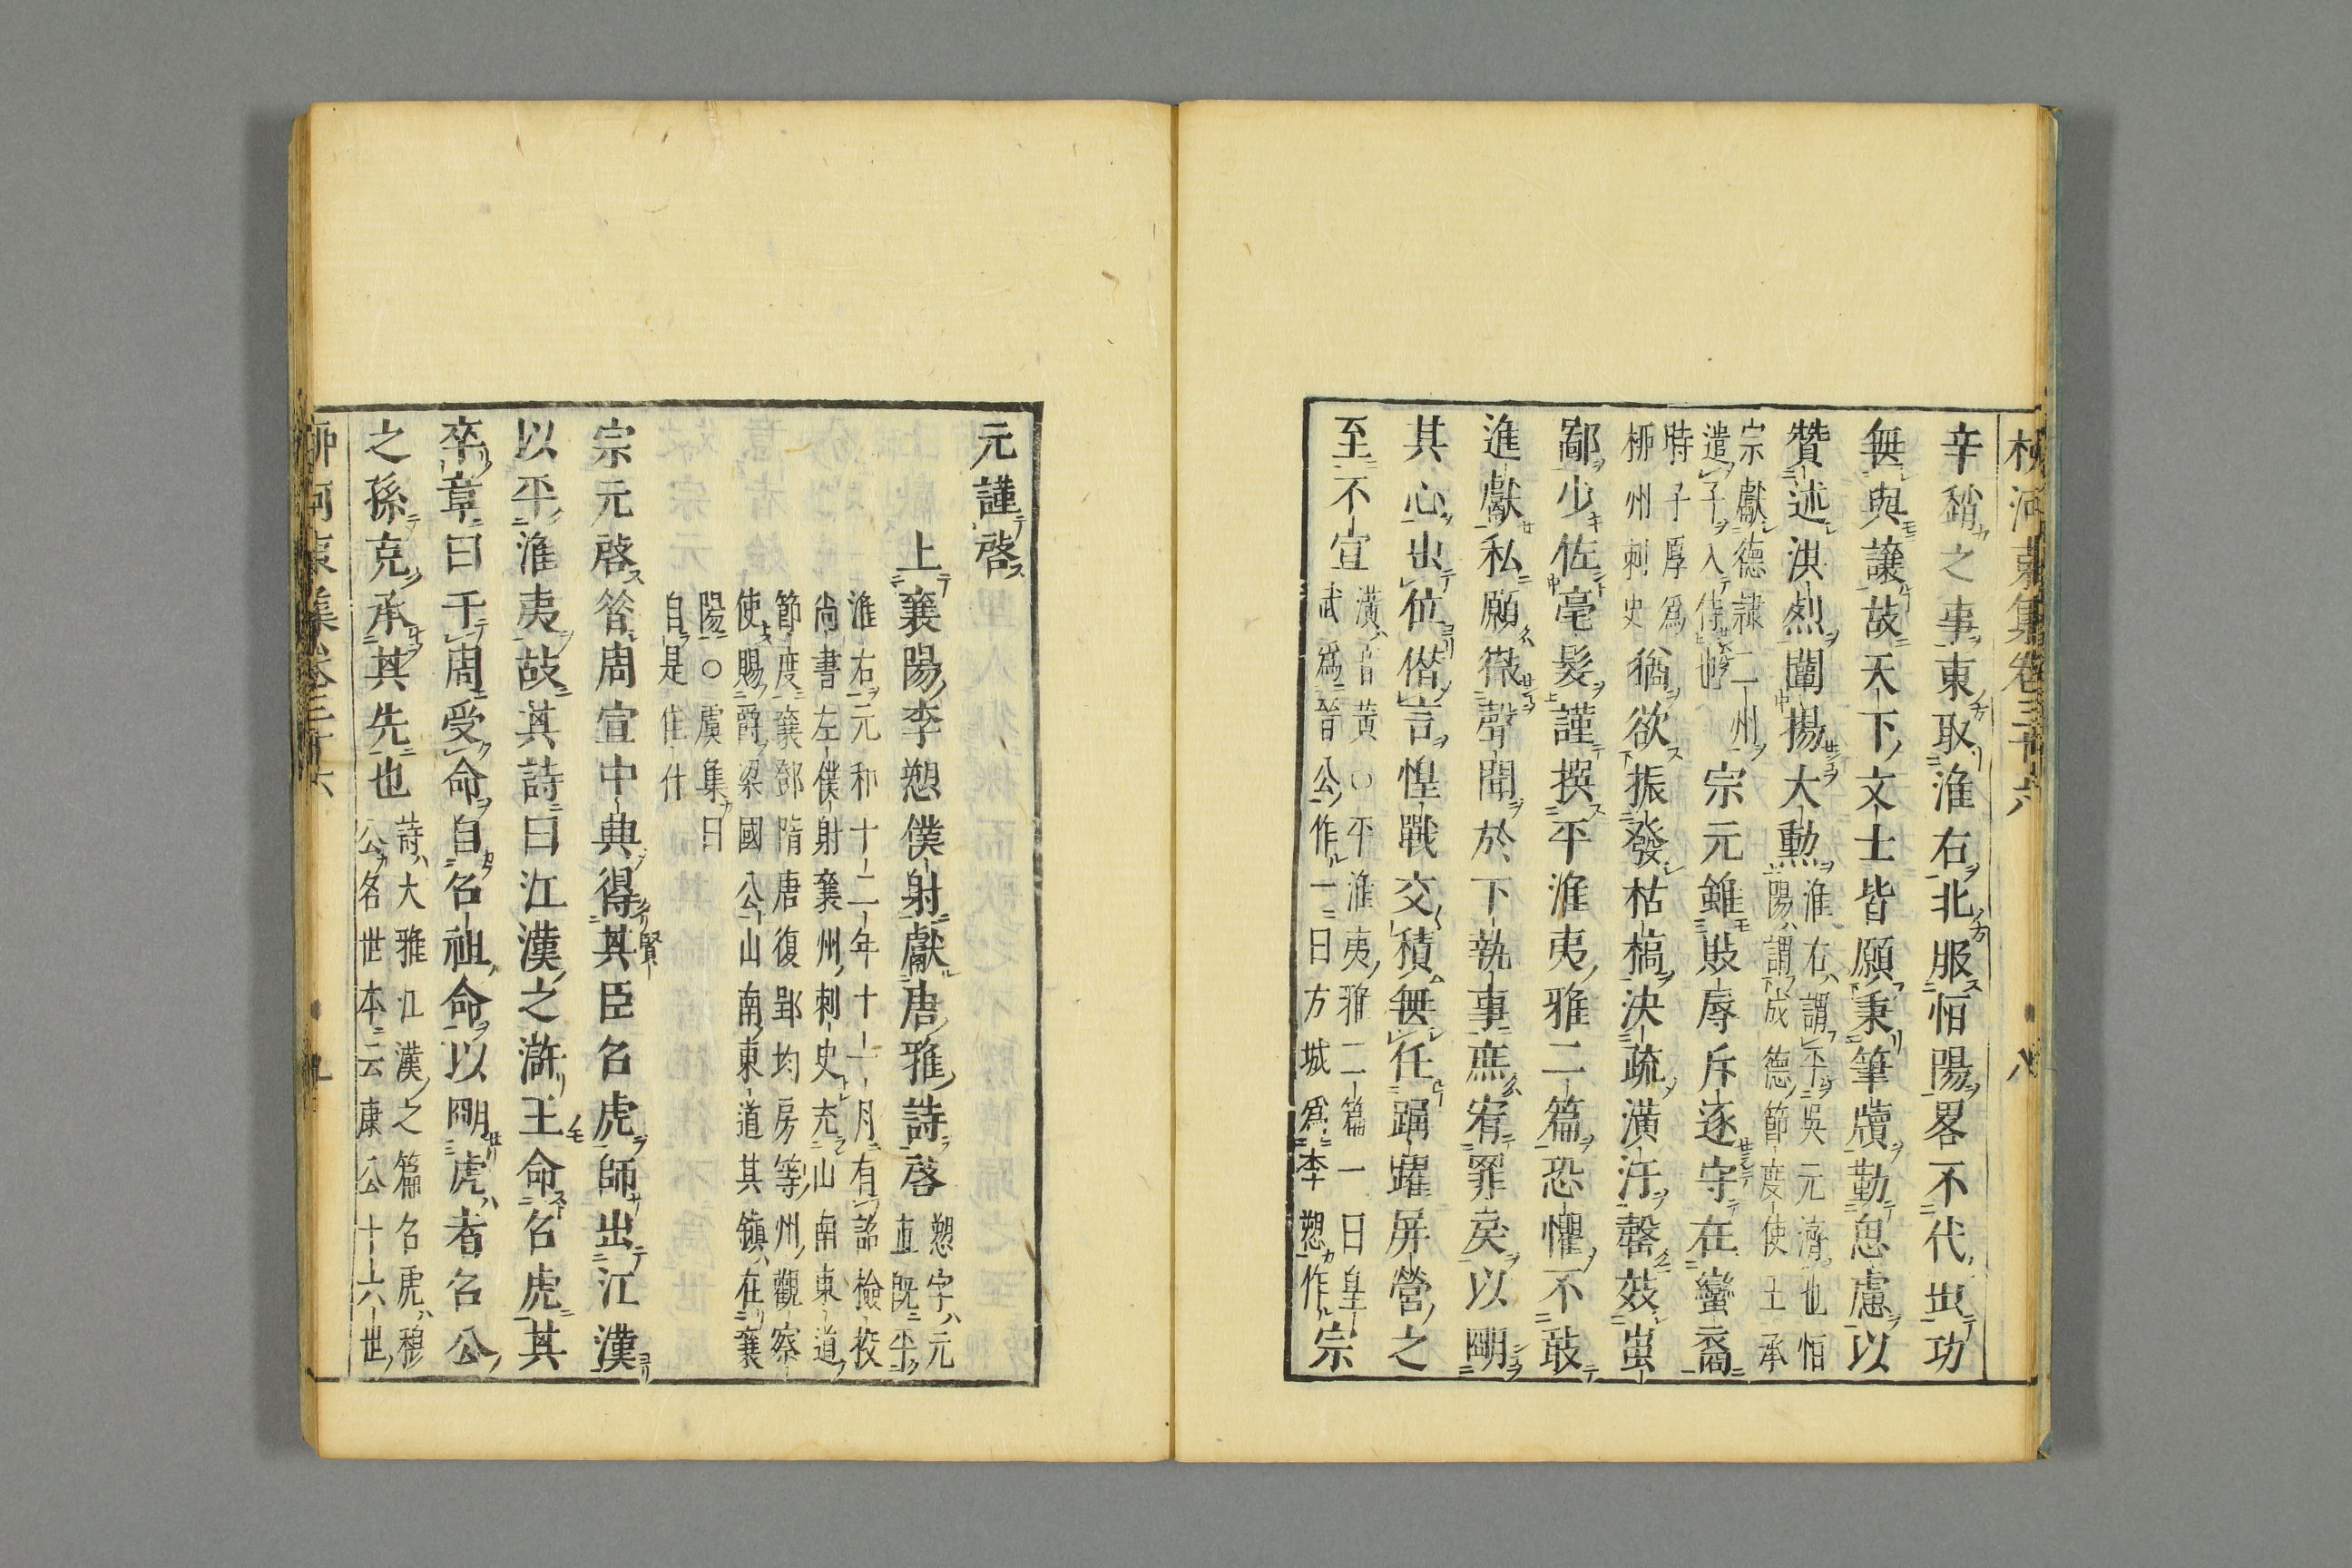 柳河東集卷三十六 八
辛銷之事東取淮右北服恒陽畧不代出功
無與讓故天下文士皆願秉筆牘勤思慮以
贊述洪烈闡揚大勲
淮右謂平吳元濟也恒
陽謂成德節度使王承
宗獻德棣二州
遣子入侍也
宗元雖敗辱斥逐守在蠻裔
時子厚爲
柳州刺史
猶欲振發枯槁決疏潢汙罄效蚩
鄙少佐毫髮謹撰平淮夷雅二篇恐懼不敢
進獻私願徹聲聞於下執事庶宥罪戾以明
其心出位僭言惶戰交積無任踴躍屏營之
至不宣
潢音黄○平淮夷雅二篇一曰皇
武爲晉公作一曰方城爲李愬作
宗
元謹啓
上襄陽李愬僕射獻唐雅詩啓
愬字元
直既平
淮右元和十二年十一月有詔檢挍
尚書左僕射襄州刺史充山南東道
節度襄鄧隋唐復郢均房等州觀察
使賜爵梁國公山南東道其鎮在襄
陽○虞集曰
自是佳什
宗元啓昝周宣中典得其臣召虎師出江漢
以平淮夷故其詩曰江漢之滸王命召虎其
卒章曰于周受命自召祖命以明虎者召公
之孫克承其先也
詩大雅江漢之篇召虎穆
公名世本云康公十六世
柳河東集卷三十六 九